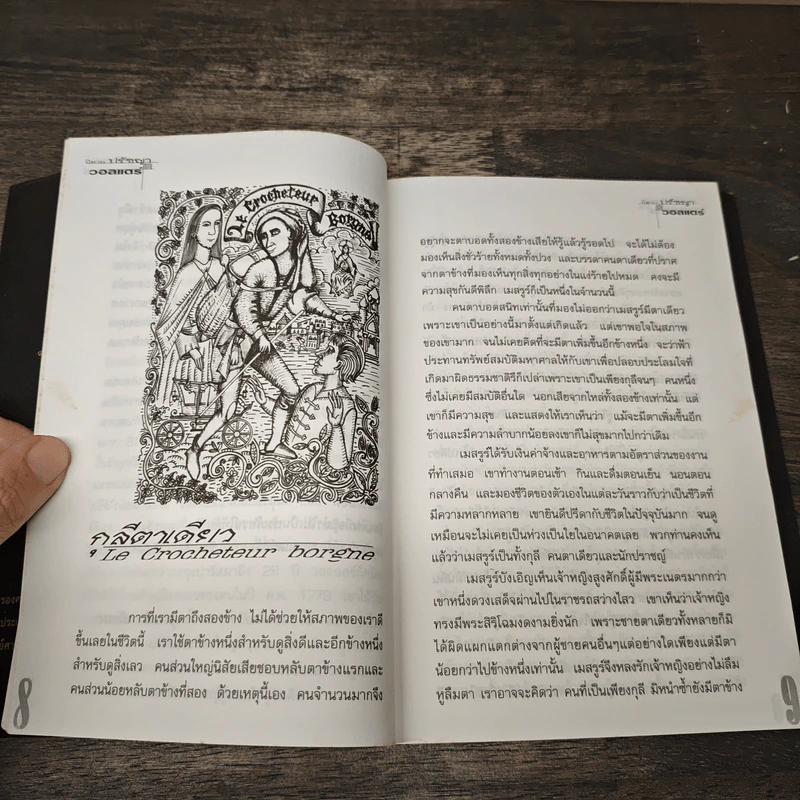 นิทานปรัชญา
วอลแตร์
Le Crocheteur
Borgne
กุลีตาเดียว
Le Crocheteur borgne
การที่เรามีตาถึงสองข้าง ไม่ได้ช่วยให้สภาพของเราดี
ขึ้นเลยในชีวิตนี้ เราใช้ตาข้างหนึ่งสำหรับดูสิ่งดีและอีกข้างหนึ่ง
สำหรับดูสิ่งเลว คนส่วนใหญ่นิสัยเสียชอบหลับตาข้างแรกและ
คนส่วนน้อยหลับตาข้างที่สอง ด้วยเหตุนี้เอง คนจำนวนมากจึง
8
นิทานปรัชญา
วอลแตร์
อยากจะตาบอดทั้งสองข้างเสียให้รู้แล้วรู้รอดไป จะได้ไม่ต้อง
มองเห็นสิ่งชั่วร้ายทั้งหมดทั้งปวง และบรรดาคนตาเดียวที่ปราศ
จากตาข้างที่มองเห็นทุกสิ่งทุกอย่างในแง่ร้ายไปหมด คงจะมี
ความสุขกันดีพิลึก เมสรูร์ก็เป็นหนึ่งในจำนวนนี้
คนตาบอดสนิทเท่านั้นที่มองไม่ออกว่าเมสรูร์มีตาเดียว
เพราะเขาเป็นอย่างนี้มาตั้งแต่เกิดแล้ว แต่เขาพอใจในสภาพ
ของเขามาก จนไม่เคยคิดที่จะมีตาเพิ่มขึ้นอีกข้างหนึ่ง จะว่าฟ้า
ประทานทรัพย์สมบัติมหาศาลให้กับเขาเพื่อปลอบประโลมใจที่
เกิดมาผิดธรรมชาติรึก็เปล่าเพราะเขาเป็นเพียงกุลีจนๆ คนหนึ่ง
ซึ่งไม่เคยมีสมบัติอื่นใด นอกเสียจากไหล่ทั้งสองข้างเท่านั้น แต่
เขาก็มีความสุข และแสดงให้เราเห็นว่า แม้จะมีตาเพิ่มขึ้นอีก
ข้างและมีความลำบากน้อยลงเขาก็ไม่สุขมากไปกว่าเดิม
เมสรูร์ได้รับเงินค่าจ้างและอาหารตามอัตราส่วนของงาน
ที่ทำเสมอ เขาทำงานตอนเช้า กินและดื่มตอนเย็น นอนตอน
กลางคืน และมองชีวิตของตัวเองในแต่ละวันราวกับว่าเป็นชีวิตที่
มีความหลากหลาย เขายินดีปรีดากับชีวิตในปัจจุบันมาก จนดู
เหมือนจะไม่เคยเป็นห่วงเป็นใยในอนาคตเลย พวกท่านคงเห็น
แล้วว่าเมสรูร์เป็นทั้งกุลี คนตาเดียวและนักปราชญ์
เมสรูร์บังเอิญเห็นเจ้าหญิงสูงศักดิ์ผู้มีพระเนตรมากกว่า
เขาหนึ่งดวงเสด็จผ่านไปในราชรถสว่างไสว เขาเห็นว่าเจ้าหญิง
ทรงมีพระสิริโฉมงดงามยิ่งนัก เพราะชายตาเดียวทั้งหลายก็มิ
ได้ผิดแผกแตกต่างจากผู้ชายคนอื่นๆแต่อย่างใดเพียงแต่มีตา
น้อยกว่าไปข้างหนึ่งเท่านั้น เมสรูร์จึงหลงรักเจ้าหญิงอย่างไม่ลืม
หูลืมตา เราอาจจะคิดว่า คนที่เป็นเพียงกุลี มิหนำซ้ำยังมีตาข้าง
9